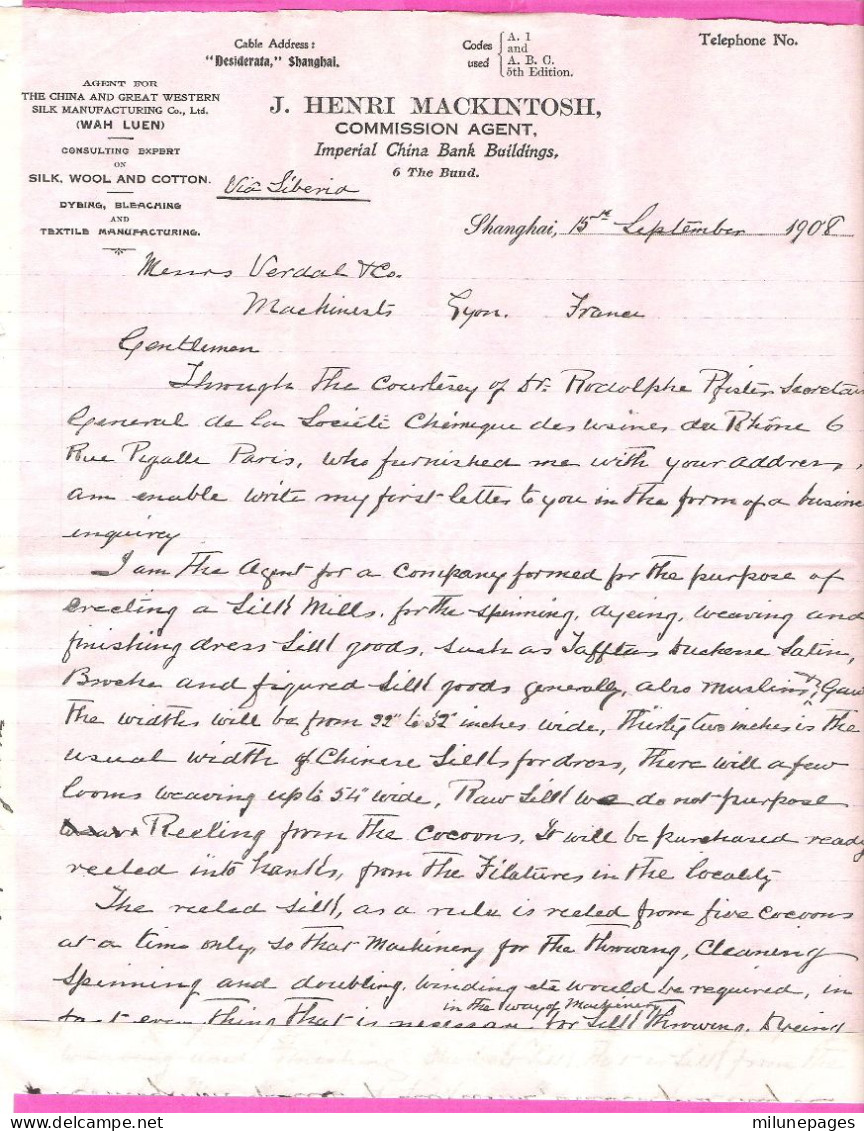 Cable Address:
"Desiderata," Shanghai.
Codes used { A. 1 and A. B. C. 5th Edition.
Telephone No.
AGENT FOR
THE CHINA AND GREAT WESTERN
SILK MANUFACTURING Co., Ltd.
(WAH LUEN)
CONSULTING EXPERT
ON
SILK, WOOL AND COTTON.
DYEING, BLEACHING
AND
TEXTILE MANUFACTURING.
J. HENRI MACKINTOSH,
COMMISSION AGENT,
Imperial China Bank Buildings,
6 The Bund.
Via Siberia
Shanghai, 15th September 1908
Messrs Verdol & Co.
Machinests Lyon. France
Gentlemen
Through the Courtesey of Dr. Rodolphe Pfister Secretai
General de la Société Chemique des usines du Rhône 6
Rue Pigalle Paris, who furnished me with your address,
am enable write my first letter to you in the form of a busine
inquirey
I am the Agent for a Company formed for the purpose of
Erecting a Silk Mills, for the spinning, dyeing, weaving and
finishing dress Silk goods, such as Tafftas Duchesse Satin,
Broche and figured Silk goods generally, also muslins, Gau
the widths will be from 22" to 32" inches wide, Thirty two inches is the
usual width of Chinese Silks for dress, there will a few
looms weaving up to 54" wide, Raw Silk we do not purpose
Reeling from the Cocoons, It will be purchased ready
reeled into hanks, from the Filatures in the locality
The reeled silk, as a rule is reeled from five Cocoons
at a time only, so that Machinery for the Throwing, Cleaning
Spinning and doubling, winding etc would be required, in
in the way of Machinery
fact every thing that is necessary for Silk Throwing, Dyeing
milunepages